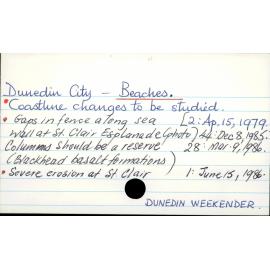 Dunedin City - Beaches.
• Coastline changes to be studied.
• Gaps in fence along sea [2: Ap. 15, 1979.
wall at St. Clair Esplanade (photo) 44: Dec 8, 1985.
Columns should be a reserve 28: Mar. 9, 1986.
(Blackhead basalt formations)
• Severe erosion at St Clair 1: June 15, 1986.
DUNEDIN WEEKENDER.